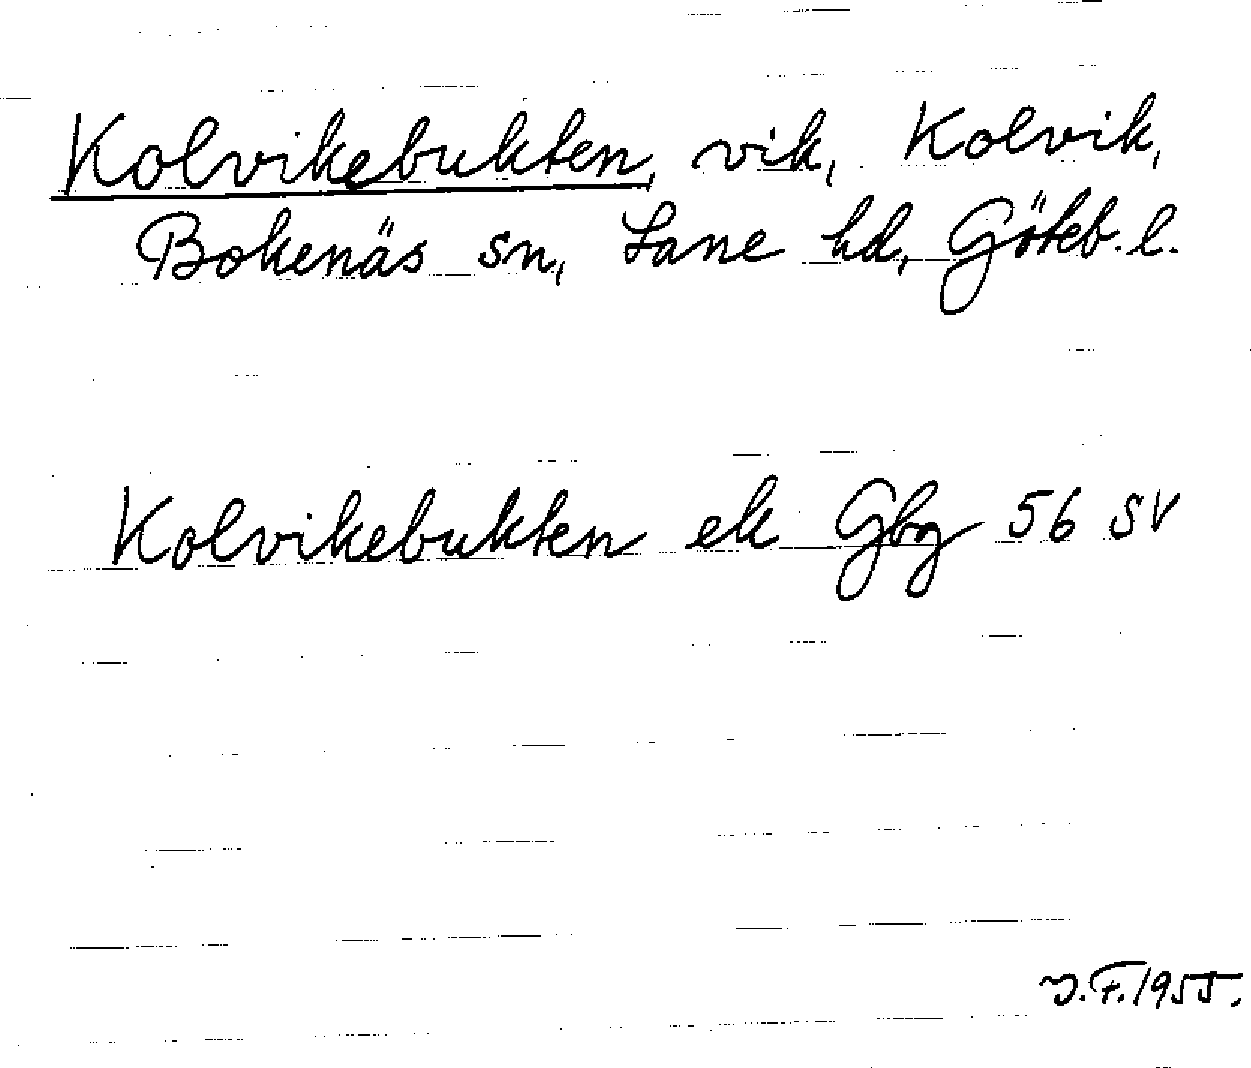 Kolvikebukten, vik, Kolvik,
Bokenäs sn, Lane hd, Göteb. l.
Kolvikebukten ek Gbg 56 SV
J.F. 1955.